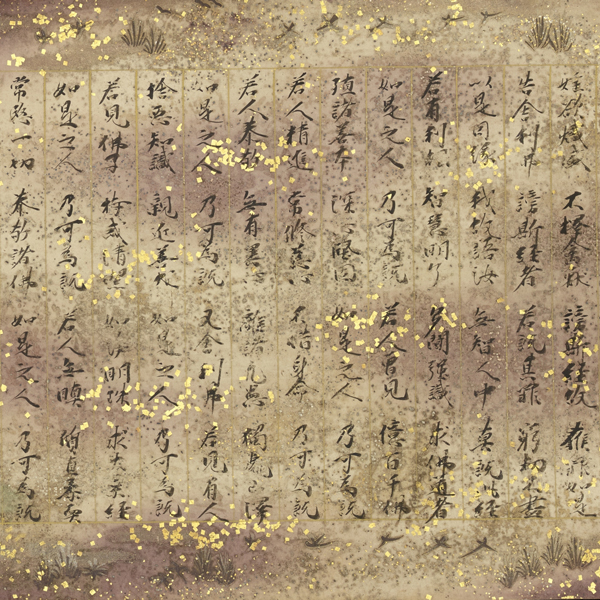 婬欲熾盛 不擇禽獸 謗斯経故 獲罪如是
告舎利弗 謗斯経者 若説其罪 窮劫不盡
以是因縁 我故語汝 無智人中 莫説此経
若有利根 智慧明了 多聞強識 求佛道者
如是之人 乃可為説 若人曽見 億百千佛
殖諸善本 深心堅固 如是之人 乃可為説
若人精進 常修慈心 不惜身命 乃可為説
若人恭敬 無有異心 離諸凡愚 獨處山澤
如是之人 乃可為説 又舎利弗 若見有人
捨惡知識 親近善友 如是之人 乃可為説
若見佛子 持戒清潔 如浄明珠 求大乗経
如是之人 乃可為説 若人無瞋 質直柔軟
常愍一切 恭敬諸佛 如是之人 乃可為説